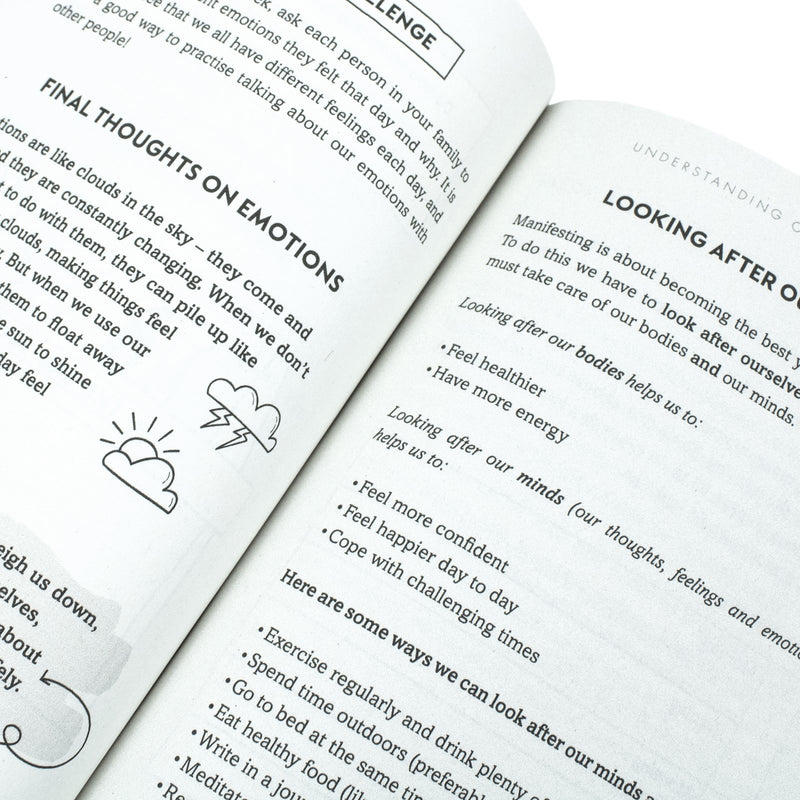 LLENGE
ask each person in your family to
emotions they felt that day and why. It is
that we all have different feelings each day, and
a good way to practise talking about our emotions with
other people!
FINAL THOUGHTS ON EMOTIONS
are like clouds in the sky – they come and
they are constantly changing. When we don't
to do with them, they can pile up like
clouds, making things feel
But when we use our
them to float away
sun to shine
day feel
eigh us down,
elves,
about
fely.
UNDERSTANDING
LOOKING AFTER
Manifesting is about becoming the best
To do this we have to look after
must take care of our bodies and our minds.
Looking after our bodies helps us to:
• Feel healthier
• Have more energy
Looking after our minds (our thoughts, feelings and
helps us to:
• Feel more confident
• Feel happier day to day
• Cope with challenging times
Here are some ways we can look after our minds
• Exercise regularly and drink plenty
• Spend time outdoors
• Go to bed at the same
• Eat healthy food
• Write in a